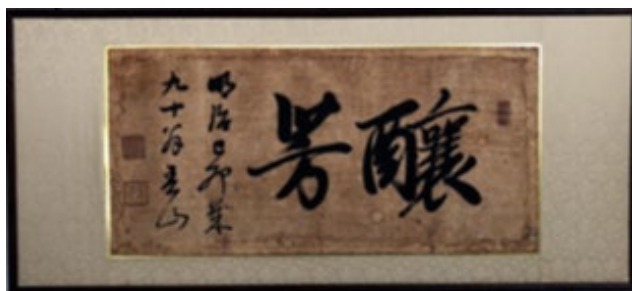 釀芳
明治己卯
九十翁 山